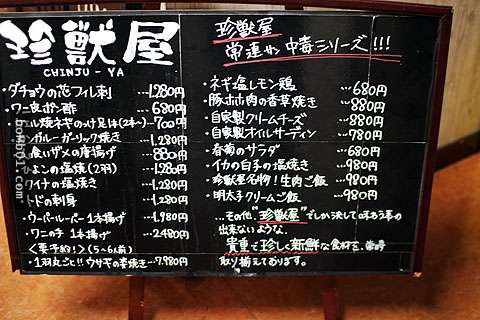 珍獣屋
CHINJU-YA
・ダチョウの花フィレ刺 …1,280円
・ワニ皮ポン酢 …680円
エル焼ネギのっけ 足1本(2本~) …700円
ンガルーガーリック焼き …1,280円
食いザメの唐揚げ …880円
よこの塩焼(2羽) …1,280円
ワイナの塩焼き …1,280円
トドの刺身 …1,280円
・ウーパールーパー 1本揚げ …1,980円
・ワニの手 1本揚げ …2,480円
<要予約!>(5~6人前)
・1羽丸ごと!!ウサギの姿焼き …7,980円
珍獣屋
常連的 中毒シリーズ!!!
・ネギ塩レモン鶏 …680円
・豚ホホ肉の香草焼き …880円
・自家製クリームチーズ …880円
・自家製オイルサーディン …780円
・春菊のサラダ …680円
・イカの白子の塩焼き …980円
・珍獣屋名物!生肉ご飯 …980円
・明太子クリームご飯 …980円
…その他、"珍獣屋"でしか決して味わう事の
出来ないような、
貴重で珍しく新鮮な食材を、常時
取り揃えております。
bom801.com